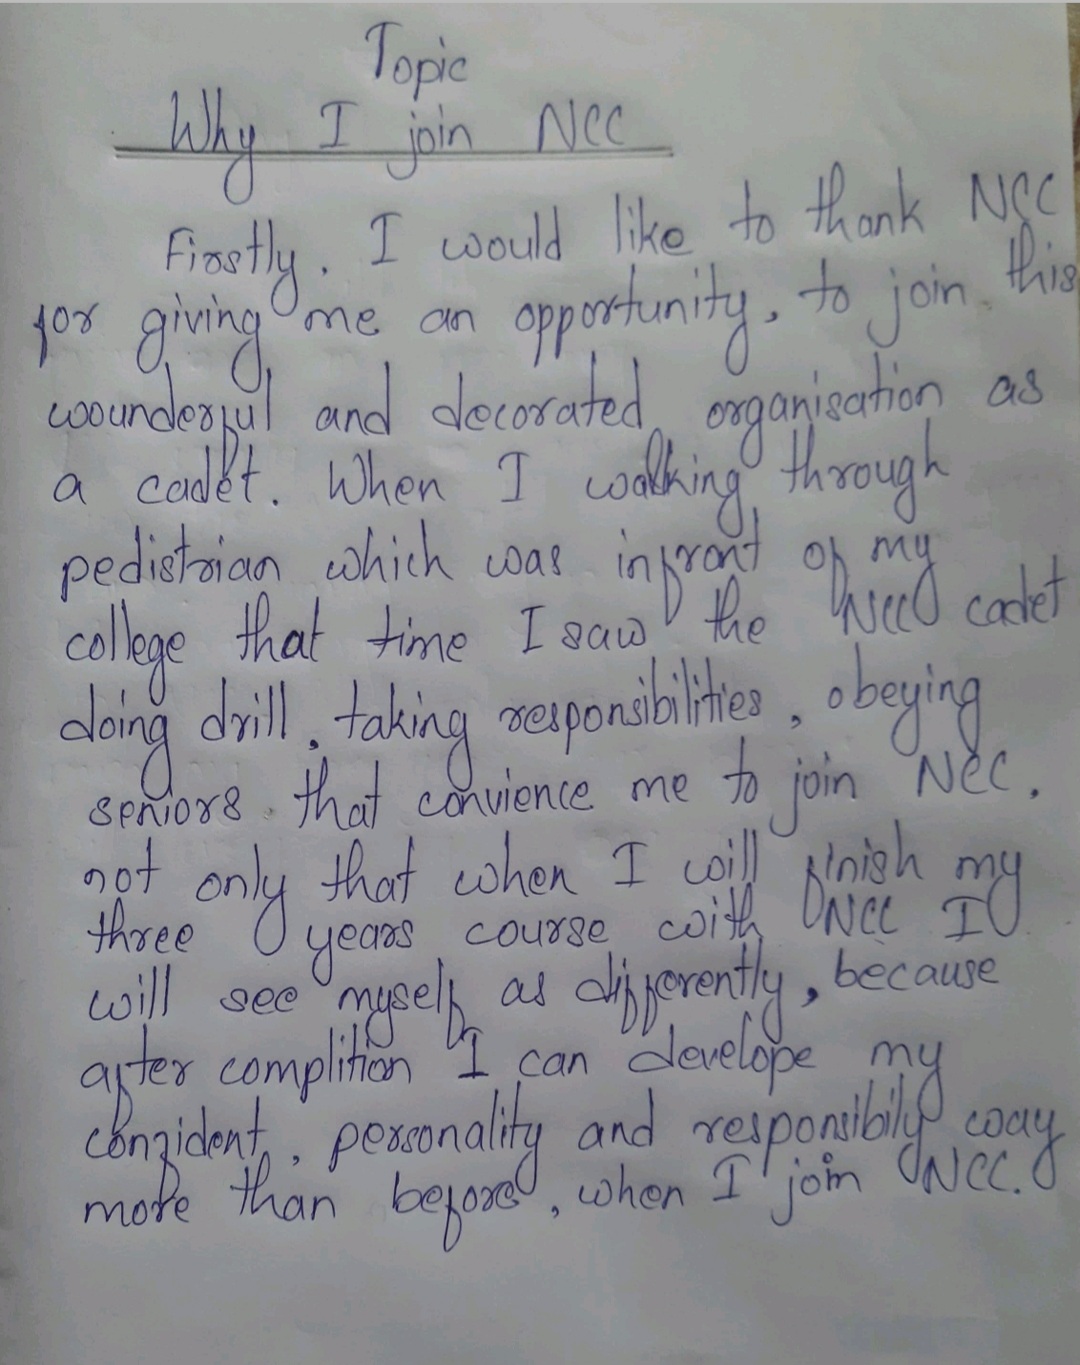 Topic
Why I join NCC
Firstly. I would like to thank NCC
for giving me an opportunity, to join this
wounderful and decorated organisation as
a cadet. When I walking through
pedistrian which was infront of my
college that time I saw the NCC cadet
doing drill, taking responsibilities, obeying
seniors. that convience me to join NCC.
not only that when I will finish my
three years course with NCC I
will see myself as differently, because
after complition I can develope my
confident, personality and responsibily way
more than before, when I join NCC.